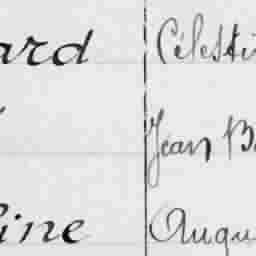 ard Célesti
Jean B
ine Augu